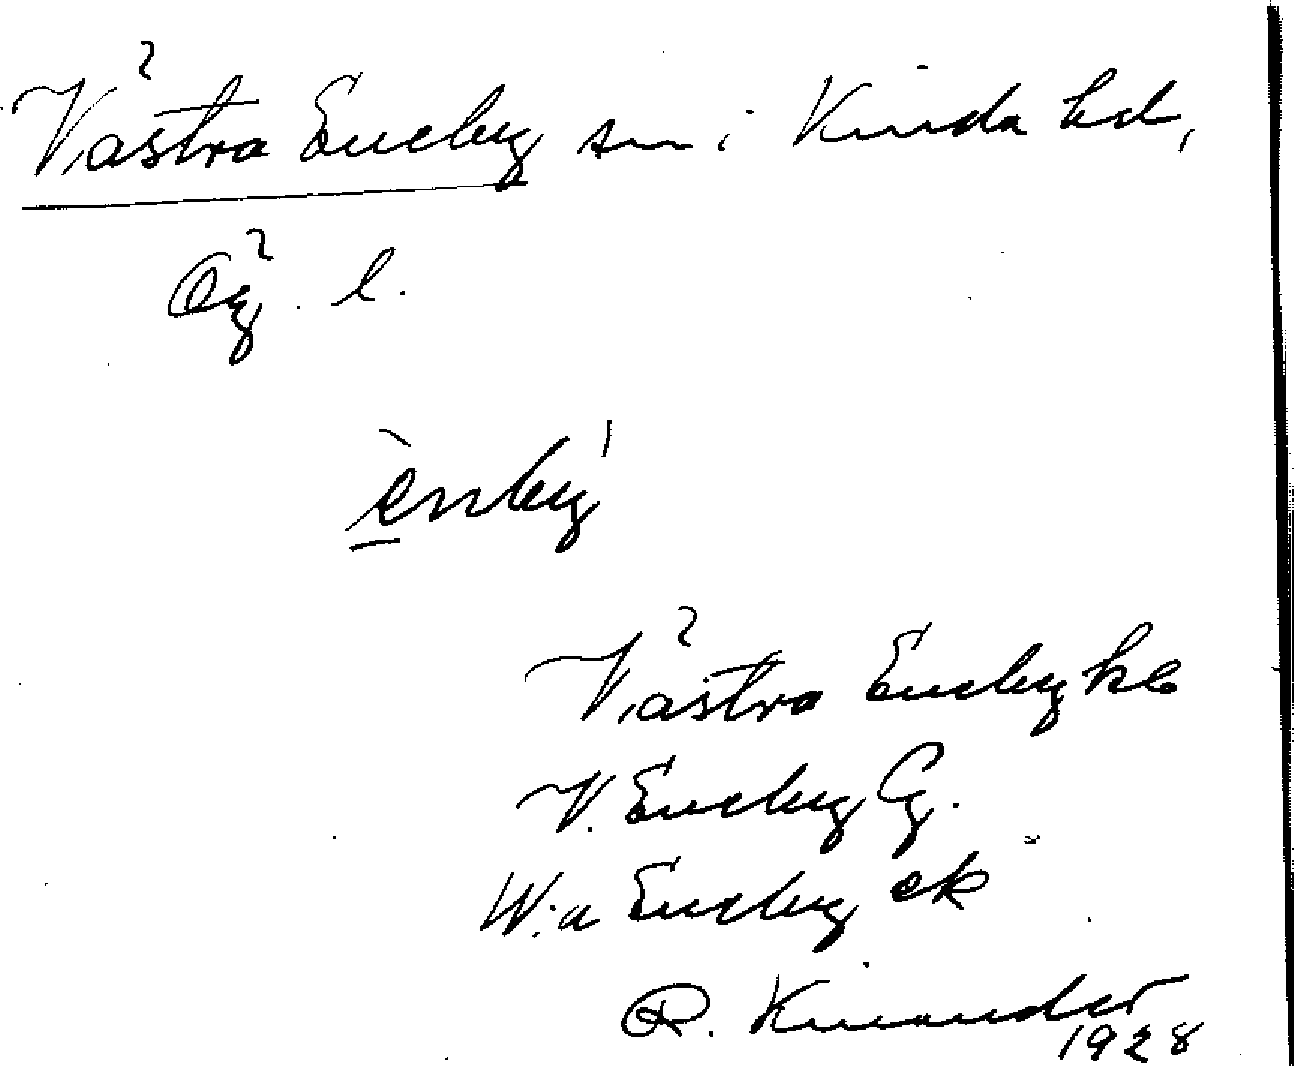 Västra Eneby sn i Kinda hd,
Ög. l.
ènby'
Västra Eneby kb
V. Eneby Gg.
W:a Eneby ek
R. Kinander
1928